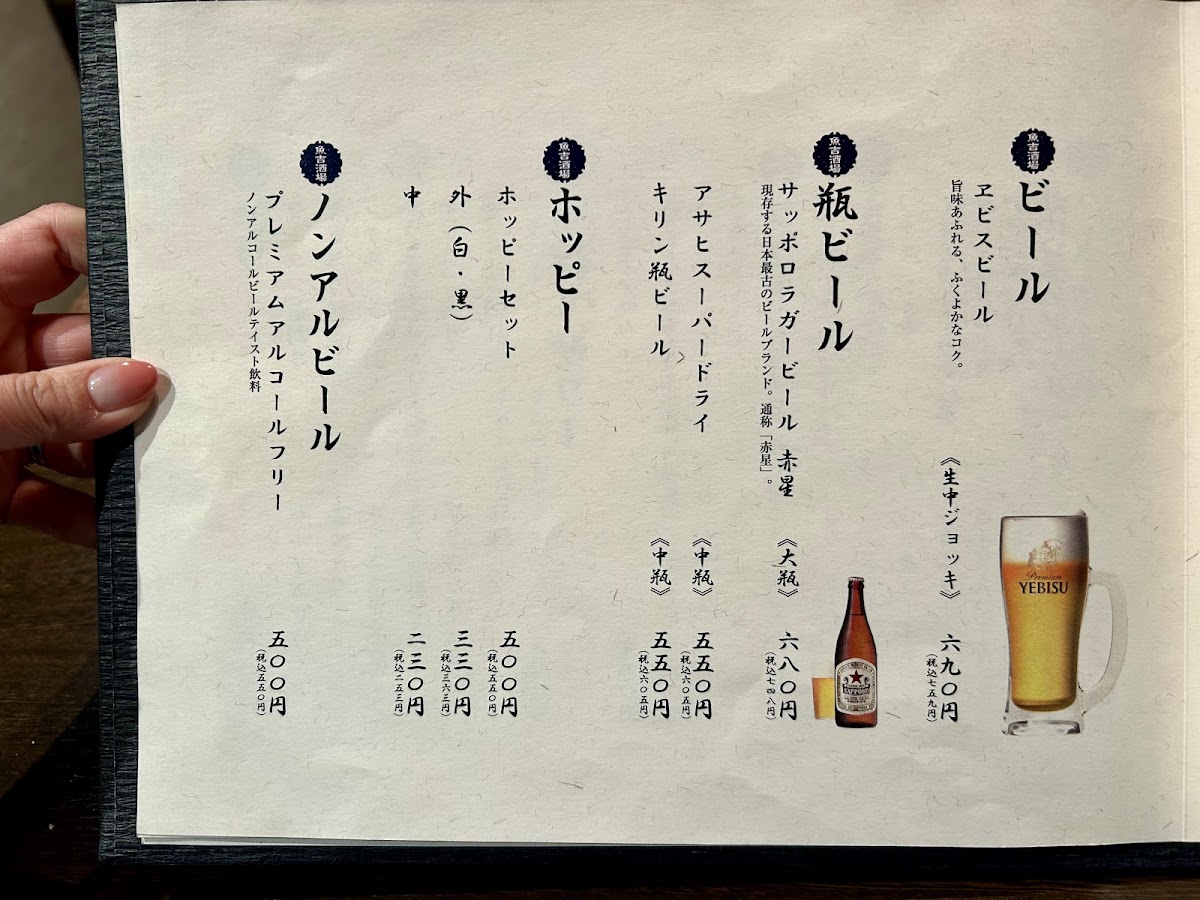 魚吉酒場
ビール
ヱビスビール
旨味あふれる、ふくよかなコク。
《生中ジョッキ》
六九〇円
(税込七五九円)
Premium
YEBISU
魚吉酒場
瓶ビール
サッポロラガービール 赤星
《大瓶》
六八〇円
(税込七四八円)
現存する日本最古のビールブランド。通称「赤星」。
SAPPORO
アサヒスーパードライ
《中瓶》
五五〇円
(税込六〇五円)
キリン瓶ビール
《中瓶》
五五〇円
(税込六〇五円)
魚吉酒場
ホッピー
ホッピーセット
五〇〇円
(税込五五〇円)
外(白・黒)
三三〇円
(税込三六三円)
中
二三〇円
(税込二五三円)
魚吉酒場
ノンアルビール
プレミアムアルコールフリー
五〇〇円
(税込五五〇円)
ノンアルコールビールテイスト飲料